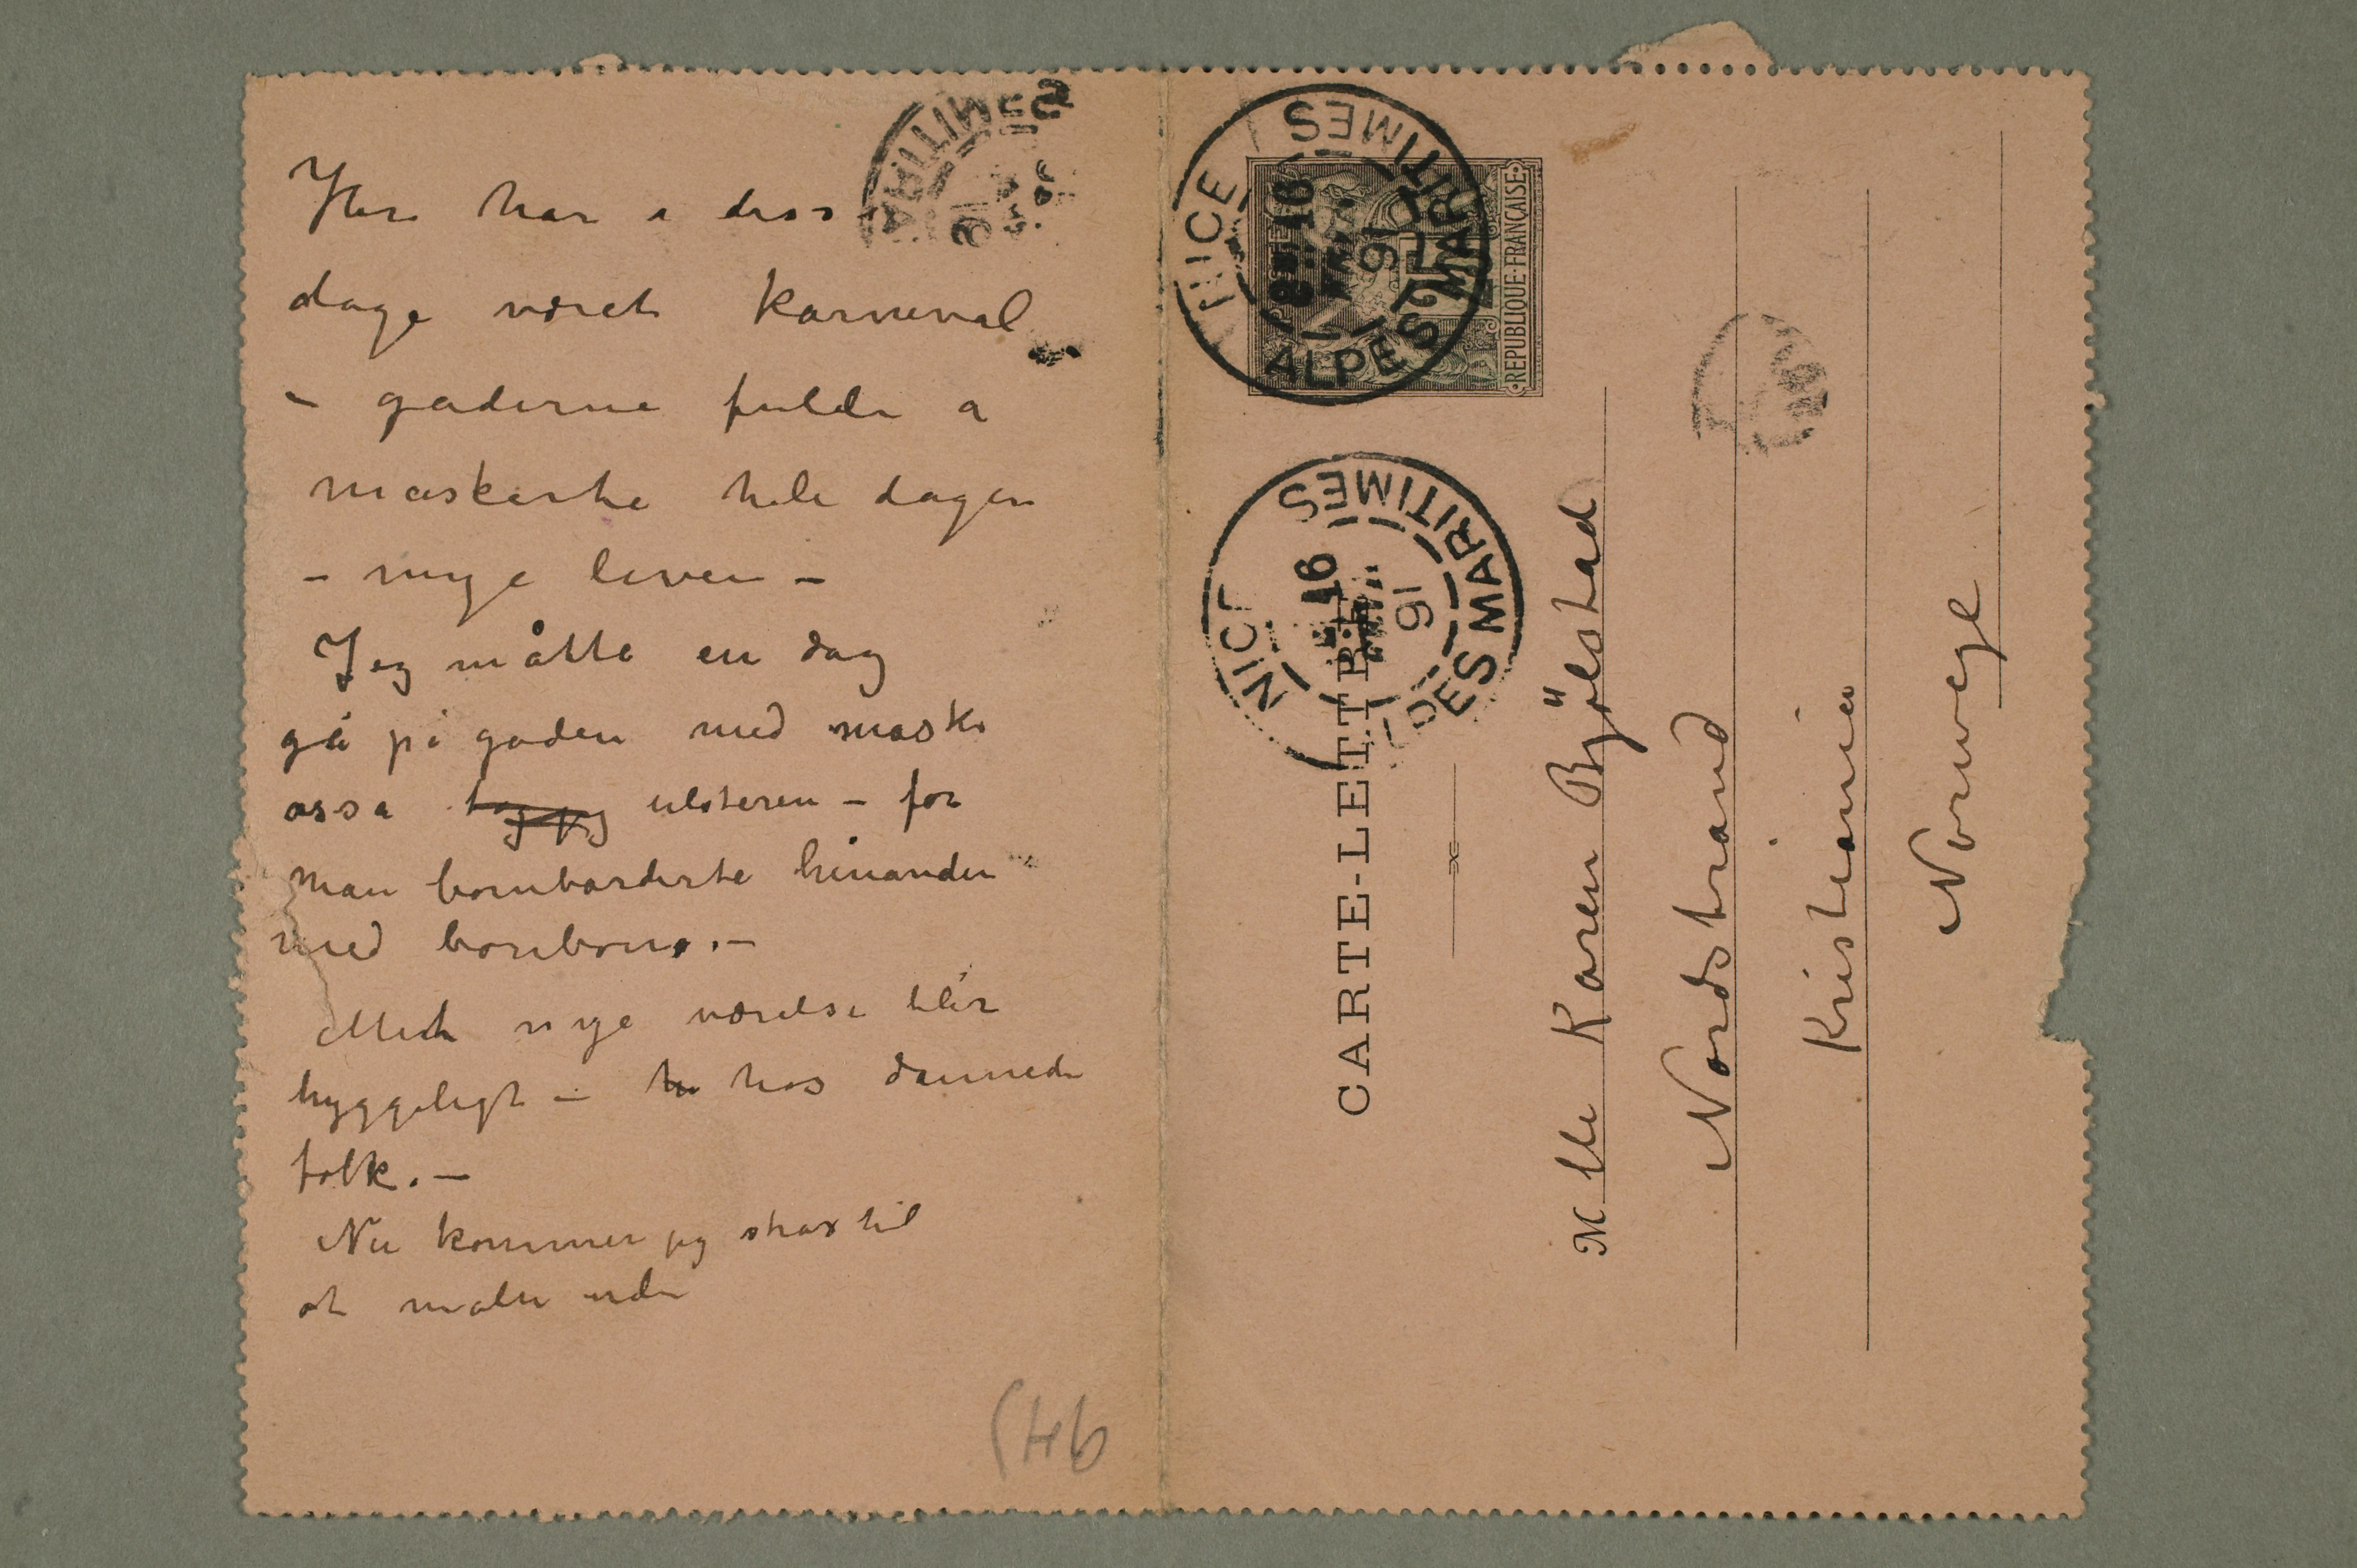 Her har i diss
dage været karneval
– gaderne fulde a
maskerte hele dagen
– myge leven –
Jeg måtte en dag
gå på gaden med maske
osså ulsteren – for
man bombarderte hinanden
med bonbons. –
Mit nye værelse blir
hyggeligt – hos dannede
folk. –
Nu kommer jeg strax til
at male ude
NICE
ALPES MARITIMES
16
91
REPUBLIQUE FRANÇAISE
NICE
DES MARITIMES
16
91
CARTE-LETTRE
Mlle Karen Bjölstad
Nordstrand
Kristiania
Norwege